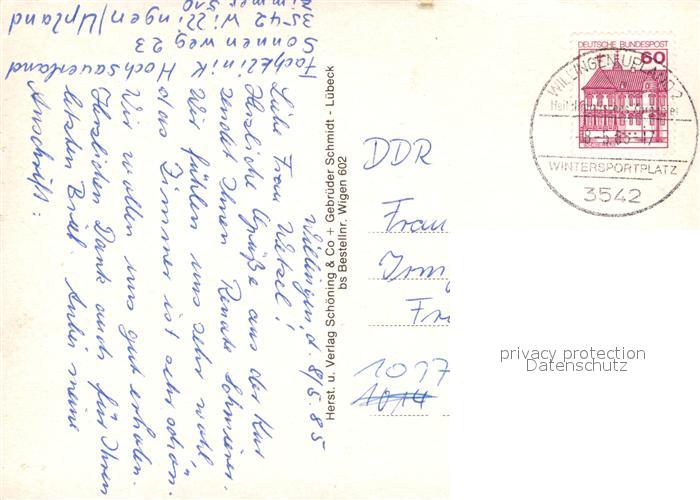 Willingen, d. 8/5.85
Liebe Frau Wetzel!
Herzliche Grüße aus der Kur
sendet Ihnen Renate
Wir fühlen uns sehr wohl,
das Zimmer ist sehr schön.
Wir wollen uns gut erholen.
Herzlichen Dank auch für Ihren
letzten Brief. Anbei meine
Anschrift:
Fachklinik Hochsauerland
Sonnenweg 23
3542 Willingen/Upland
Zimmer 510
Herst. u. Verlag Schöning & Co + Gebrüder Schmidt - Lübeck
bs Bestellnr. Wigen 602
DEUTSCHE BUNDESPOST
60
WILLINGEN, UPLAND 2
-8.-5.85-17
WINTERSPORTPLATZ
3542
DDR
Frau
Irm
Fr
1017
1014
privacy protection
Datenschutz